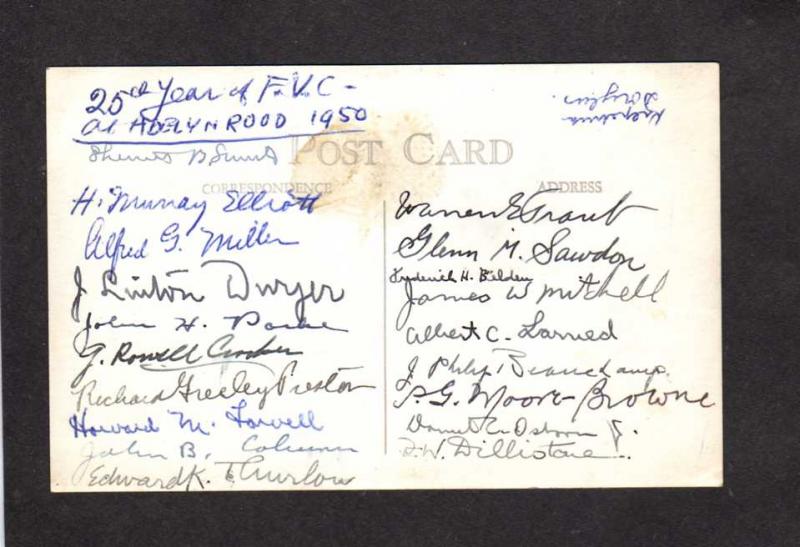 25th Year of F.V.C. -
at ADELYNROOD 1950
POST CARD
CORRESPONDENCE
ADDRESS
H. Murray Elliott
Alfred G. Miller
J Linton Dwyer
John H. Parke
G. Rowell Crocker
Richard Greeley Preston
Howard M. Lowell
John B.
Edward K. Thurlow
Warren E Traub
Glenn M. Sawdon
Frederick H. Belden
James W Mitchell
Albert C. Larned
J. Philip Beauchamp.
P.G. Moore-Browne
Osborn Jr.
F.W. Dillistone